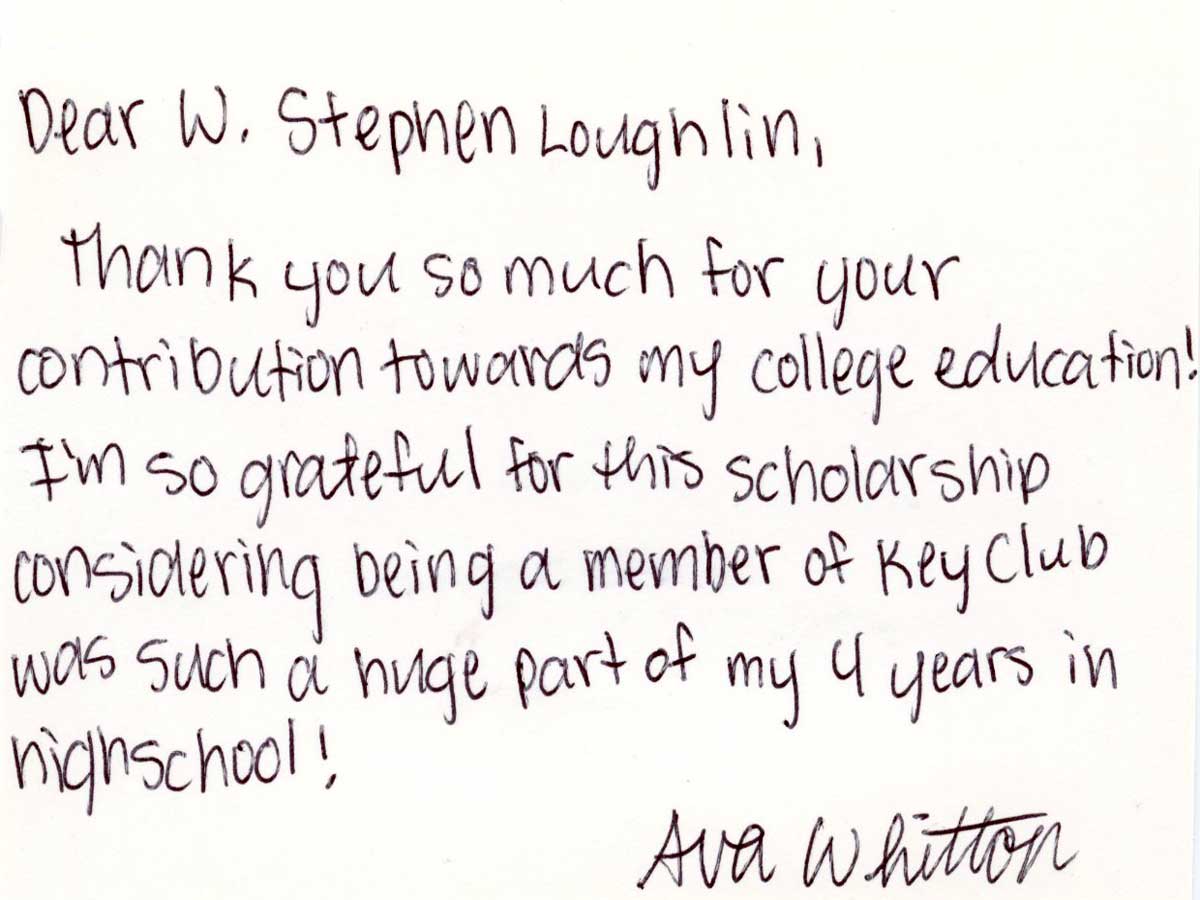 Dear W. Stephen Loughlin,
Thank you so much for your
contribution towards my college education!
I'm so grateful for this scholarship
considering being a member of Key Club
was such a huge part of my 4 years in
highschool!
Ava Whitton